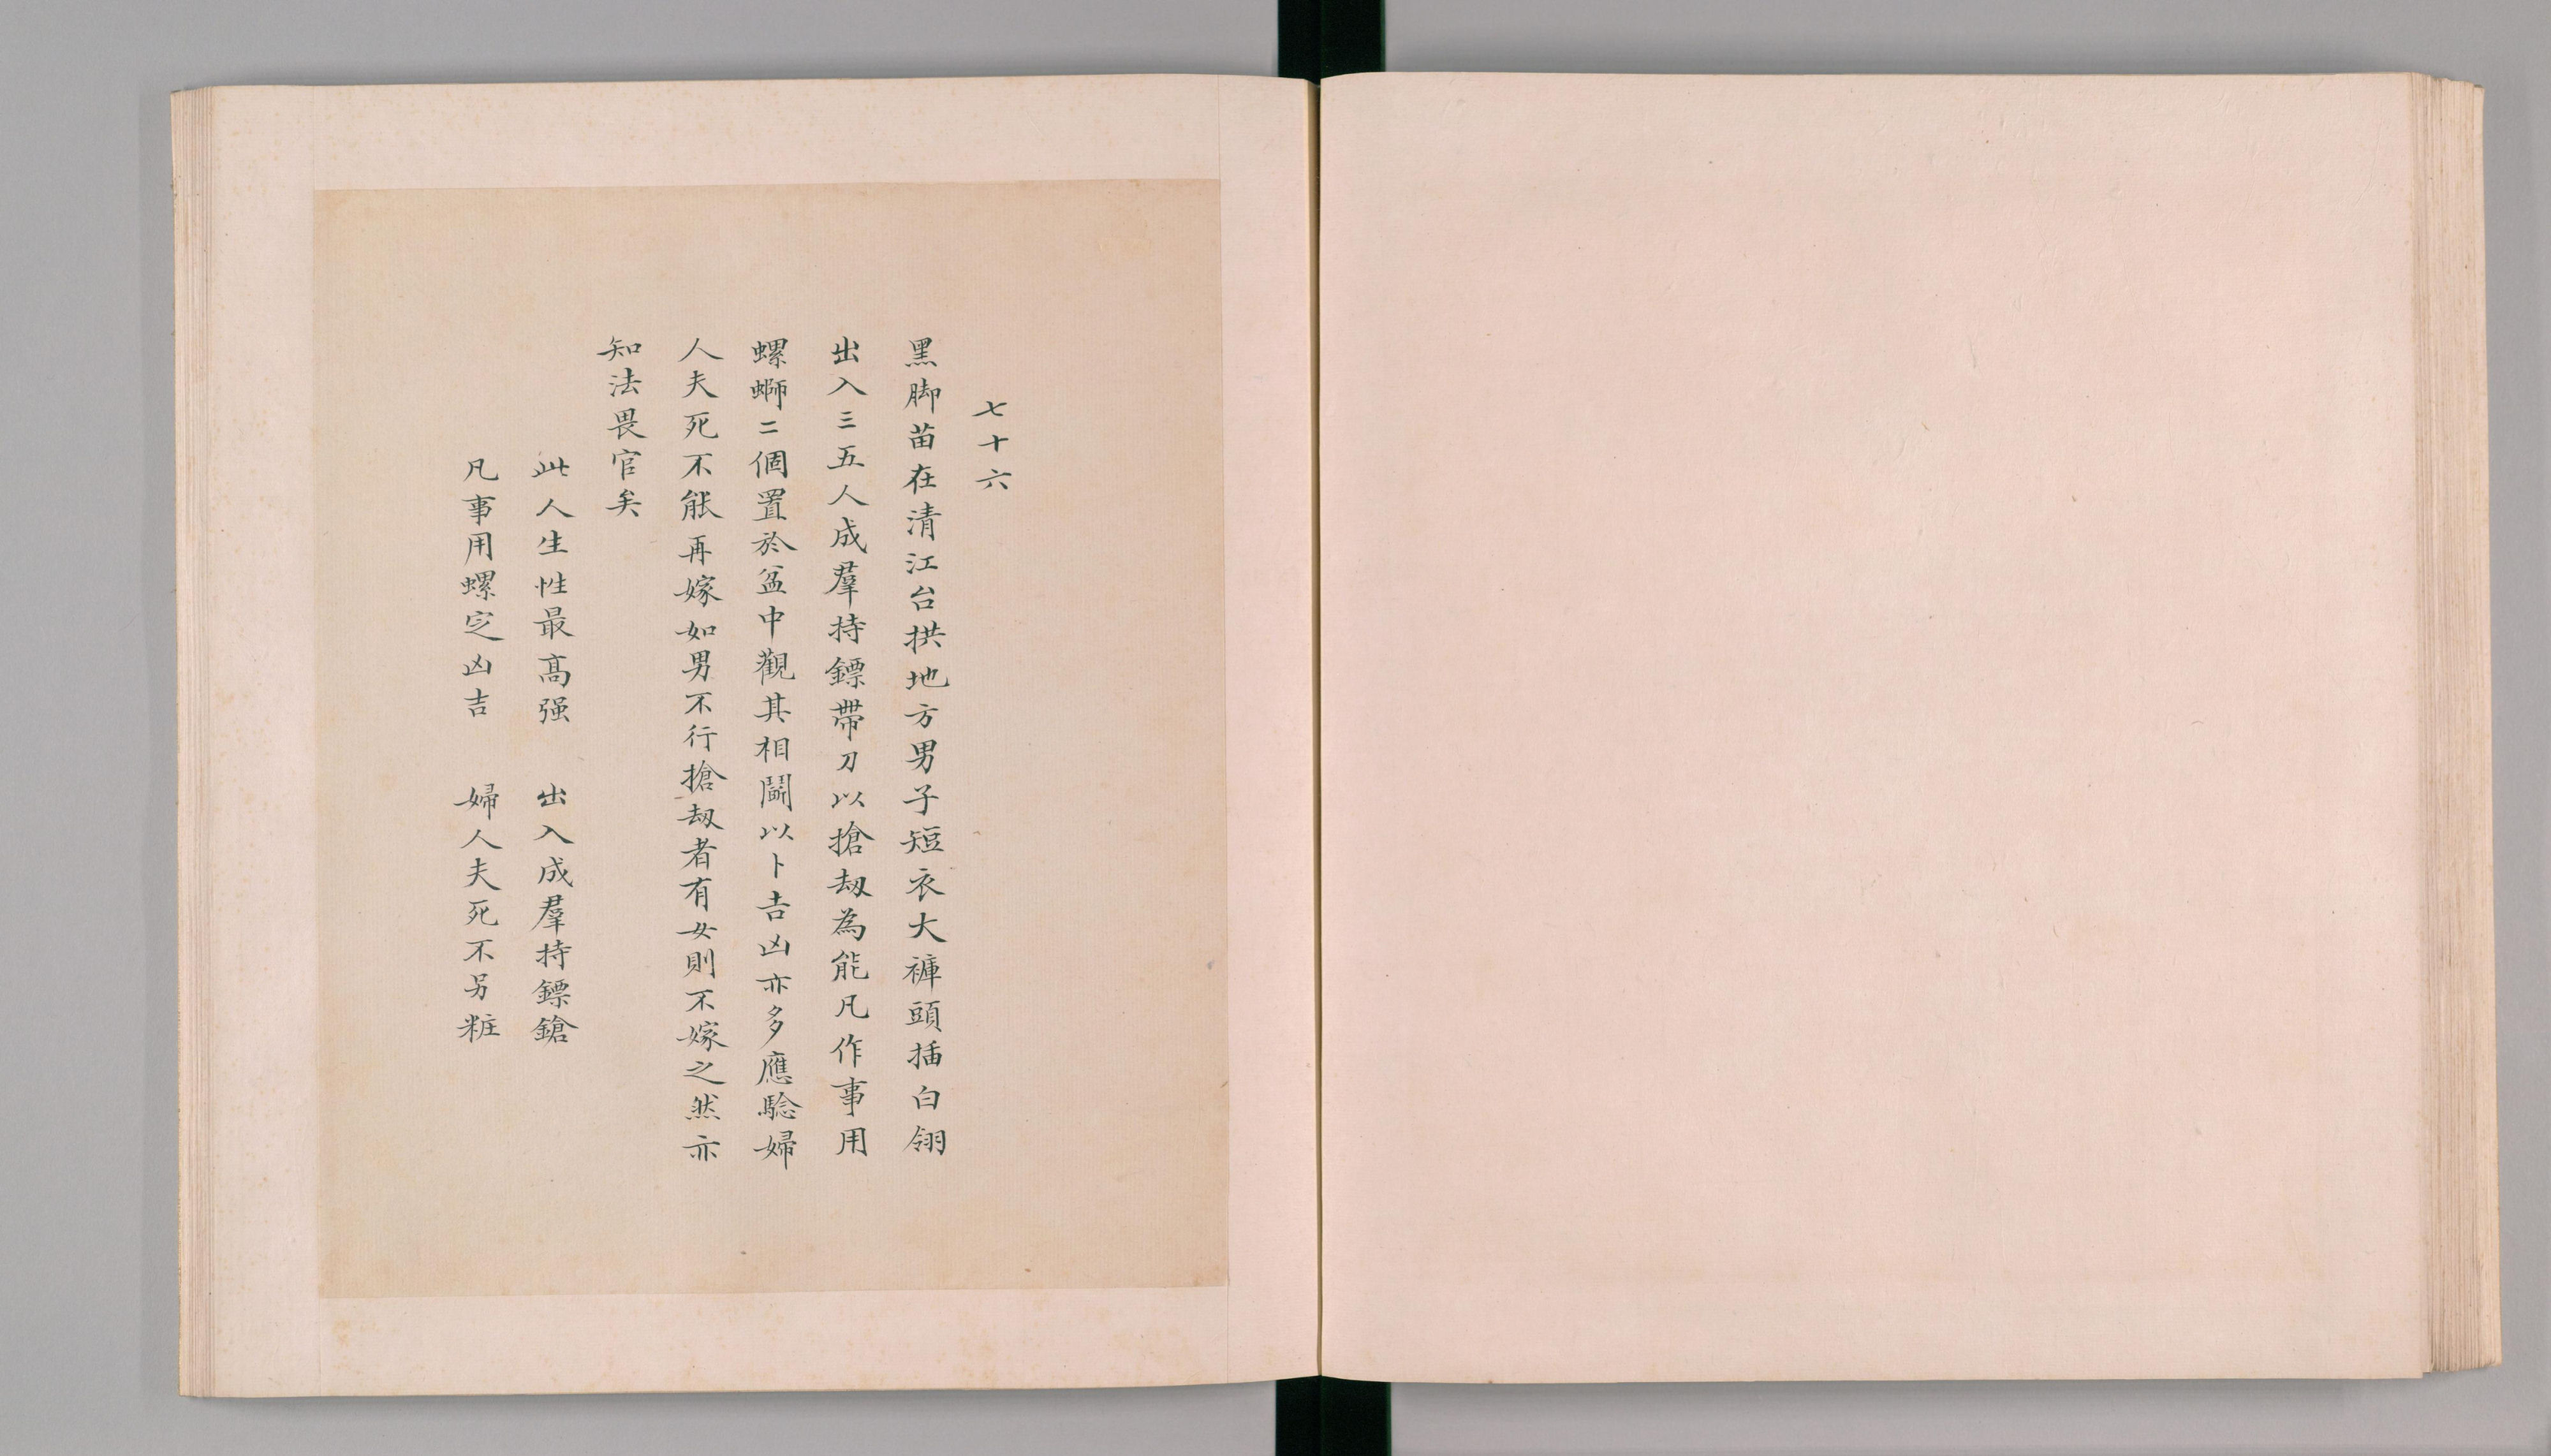 七十六
黑脚苗在清江台拱地方男子短衣大褲頭插白翎
出入三五人成羣持鏢帶刀以搶刼為能凡作事用
螺螄二個置於盆中觀其相鬭以卜吉凶亦多應驗婦
人夫死不能再嫁如男不行搶刼者有女則不嫁之然亦
知法畏官矣
此人生性最高强　出入成羣持鏢鎗
凡事用螺定凶吉　婦人夫死不另粧